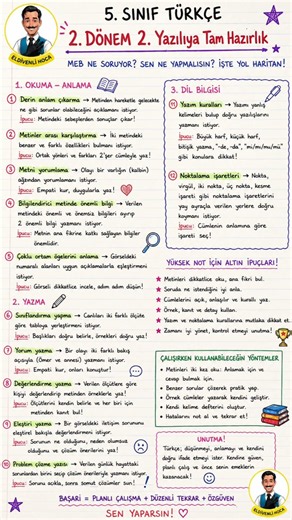 ELDİVENLİ HOCA
5. SINIF TÜRKÇE
2. DÖNEM 2. Yazılıya Tam Hazırlık
MEB NE SORUYOR? SEN NE YAPMALISIN? İŞTE YOL HARİTAN!
1. OKUMA - ANLAMA
1 Derin anlam çıkarma → Metinden hareketle gelecekte
ne gibi sorunlar olabileceğini yazmanı istiyor.
İpucu: Metindeki sebeplerden sonuçlar çıkar!
2 Metinler arası karşılaştırma → İki metindeki
benzer ve farklı özellikleri bulmanı istiyor.
İpucu: Ortak yönleri ve farkları 2'şer cümleyle yaz!
3 Metni yorumlama → Olayı bir varlığın (kalbin)
ağzından yorumlamanı istiyor.
İpucu: Empati kur, duygularla yaz!
4 Bilgilendirici metinde önemli bilgi → Verilen
metindeki önemli ve önemsiz bilgileri ayırıp
2 önemli bilgi yazmanı istiyor.
İpucu: Metnin ana fikrine katkı sağlayan bilgiler
önemlidir.
5 Çoklu ortam ögelerini anlama → Görseldeki
numaralı alanları uygun açıklamalarla eşleştirmeni
istiyor.
İpucu: Görseli dikkatlice incele, adım adım düşün!
2. YAZMA
6 Sınıflandırma yapma → Canlıları iki farklı ölçüte
göre tabloya yerleştirmeni istiyor.
İpucu: Başlıkları doğru belirle, örnekleri doğru yaz!
7 Yorum yazma → Bir olayı iki farklı bakış
açısıyla (Ömer ve annesi) yazmanı istiyor.
İpucu: Empati kur, onları konuştur!
8 Değerlendirme yazma → Verilen ölçütlere göre
kişiyi değerlendirip metinden örneklerle yaz!
İpucu: Ölçütlerin kendini belirle ve her biri için
metinden kanıt bul!
9 Eleştiri yazma → Bir görseldeki iletişim sorununu
eleştiri yazısı olarak yazmanı istiyor.
İpucu: Sorunun ne olduğunu, neden olumsuz
olduğunu ve çözüm önerini yaz!
10 Problem çözme yazısı → Verilen günlük hayattaki
sorunlardan birini seçip çözüm önerileriyle yazman istiyor.
İpucu: Sorunu açıkla, sonra somut çözümler sun!
3. DİL BİLGİSİ
11 Yazım kuralları → Yazımı yanlış
kelimeleri bulup doğru yazılışlarını
yazmanı istiyor.
İpucu: Büyük harf, küçük harf,
bitişik yazma, "-de, -da", "mı/mi/mu/mü"
gibi konulara dikkat!
12 Noktalama işaretleri → Nokta,
virgül, iki nokta, üç nokta, kesme
işareti gibi noktalama işaretlerini
yay ayraçla verilen yerlere doğru
koymanı istiyor.
İpucu: Cümlenin anlamına göre
işareti seç!
YÜKSEK NOT İÇİN ALTIN İPUÇLARI!
Metinleri dikkatlice oku, ana fikri bul.
Soruda ne istendiğini iyi anla.
Cümlelerini açık, anlaşılır ve kurallı yaz.
Örnek, kanıt ve detay kullan.
Yazım ve noktalama kurallarına mutlaka dikkat et.
Zamanı iyi yönet, kontrol etmeyi unutma!
ÇALIŞIRKEN KULLANABİLECEĞİN YÖNTEMLER
Metinleri iki kez oku: Anlamak için ve
cevap bulmak için.
Benzer sorular çözerek pratik yap.
Örnek cümleler yazarak kendini geliştir.
Kendi kelime defterini oluştur.
Hatalarını not al ve tekrar et!
UNUTMA!
Türkçe; düşünmeyi, anlamayı ve kendini
doğru ifade etmeyi ister. Kendine güven,
planlı çalış ve önce senin emeklerin
kazanacak!
BAŞARI = PLANLI ÇALIŞMA + DÜZENLİ TEKRAR + ÖZGÜVEN
SEN YAPARSIN!
ELDİVENLİ HOCA